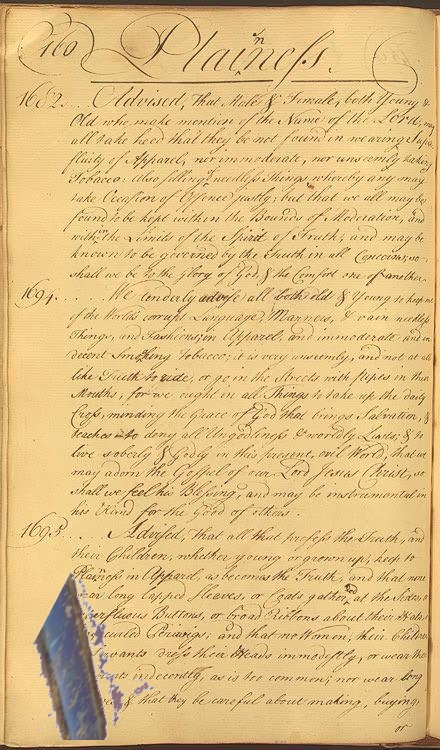 160
Plainness.
1682... Advised, That Male & Female, both Young &
Old who make mention of the Name of the Lord, may
all take heed that they be not found in wearing Supr-
fluity of Apparel, nor immoderate, nor unseemly taking
Tobacco: also selling needless Things whereby any may
take Occasion of Offence justly; but that we all may be
found to be kept within the Bounds of Moderation, and
within the Limits of the Spirit of Truth; and may be
known to be governed by the Truth in all Concerns, so
shall we be to the Glory of God, & the Comfort one of another
1694.... We tenderly advise all both old & Young to keep out
of the World's corrupt Language, Manners, & vain needless
Things, and Fashions, in Apparel; and immoderate and in
decent Smoking tobacco; it is very unseemly, and not at all
like Truth to ride, or go in the Streets with pipes in their
Mouths, for we ought in all Things to take up the daily
Cross, minding the Grace of God that brings Salvation, &
teaches to deny all Ungodliness & worldly Lusts; & to
live soberly & Godly in this present, evil World, that we
may adorn the Gospel of our Lord Jesus Christ, so
shall we feel his Blessing, and may be instrumental in
his Hand for the Good of others.
1695... Advised, That all that profess the Truth, and
their Children, whether young or grown up, keep to
Plainness in Apparel, as becomes the Truth; and that none
long lapped Sleaves, or Coats gather'd at the Sides, or
Buttons, or broad Ribbons about their Hats,
and that no Women, their Children
dress their Heads immodestly, or wear their
indecently, as is too common; nor wear long
& that they be careful about making, buying,
or